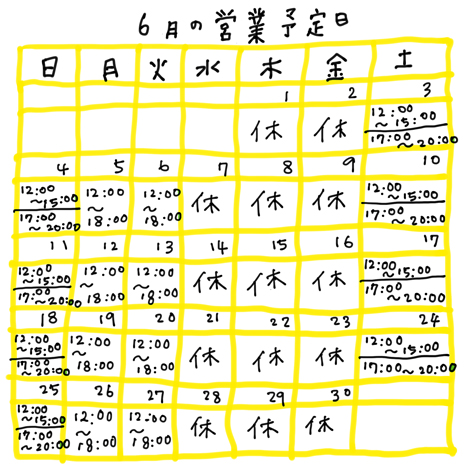 6月の営業予定日
日 月 火 水 木 金 土
1 2 3
休 休 12:00
～15:00
17:00
～20:00
4 5 6 7 8 9 10
12:00
～15:00
17:00
～20:00
12:00
～
18:00
12:00
～
18:00
休 休 休
12:00
～15:00
17:00
～20:00
11 12 13 14 15 16 17
12:00
～15:00
17:00
～20:00
12:00
～
18:00
12:00
～
18:00
休 休 休
12:00
～15:00
17:00
～20:00
18 19 20 21 22 23 24
12:00
～15:00
17:00
～20:00
12:00
～
18:00
12:00
～
18:00
休 休 休
12:00
～15:00
17:00～20:00
25 26 27 28 29 30
12:00
～15:00
17:00
～20:00
12:00
～
18:00
12:00
～
18:00
休 休 休